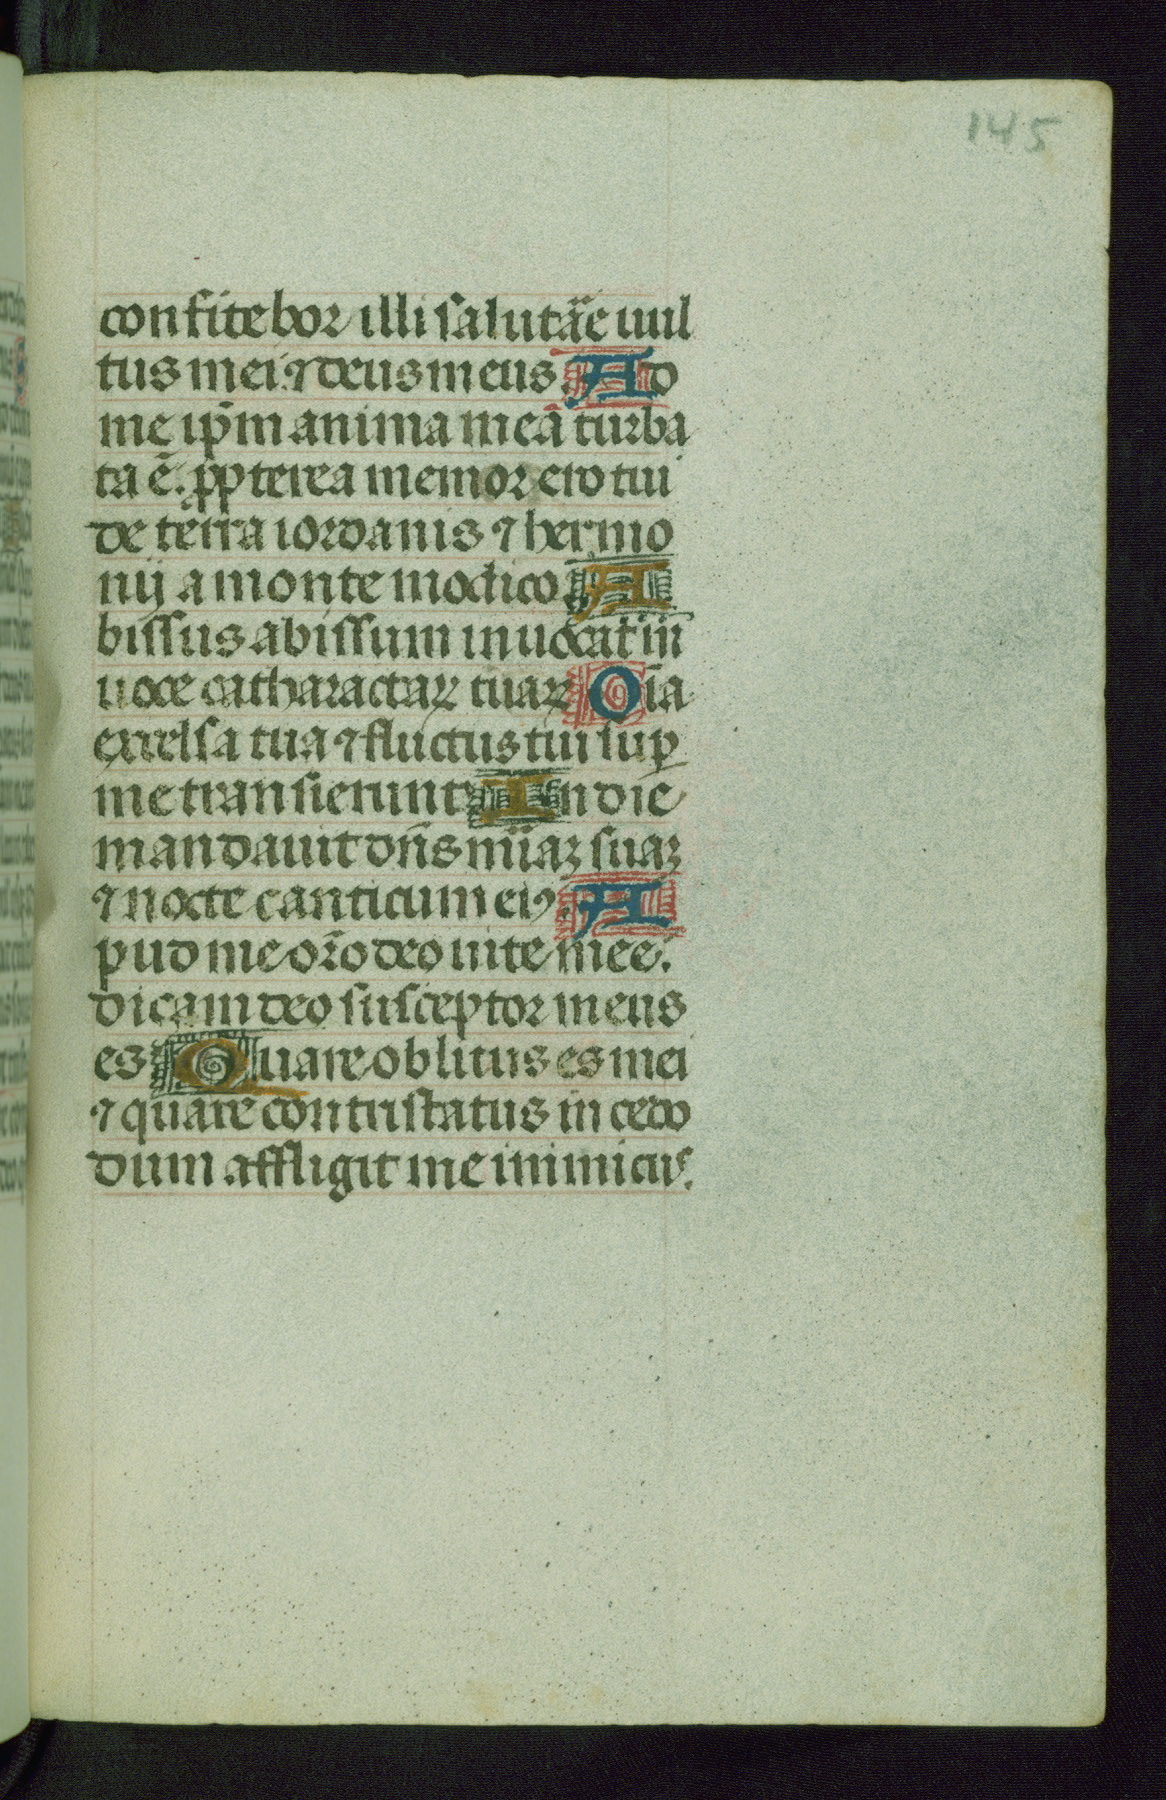 145
confitebor illi salutar̄e uul
tus mei: ⁊ deus meus. Ad
me ip̄m anima mea turba
ta ē. ꝓpterea memor ero tui
de terra iordanis ⁊ hermo
nij a monte modico. A
bissus abissum inuocat in
uoce catharactaꝝ tuaꝝ Oīa
excelsa tua ⁊ fluctus tui suꝑ
me transierunt. In die
mandauit dn̄s mīaꝫ suaꝫ
⁊ nocte canticum eiꝰ. A
pud me or̄o deo uite mee:
dicam deo susceptor meus
es Quare oblitus es mei
⁊ quare contristatus incedo
dum affligit me inimicus.